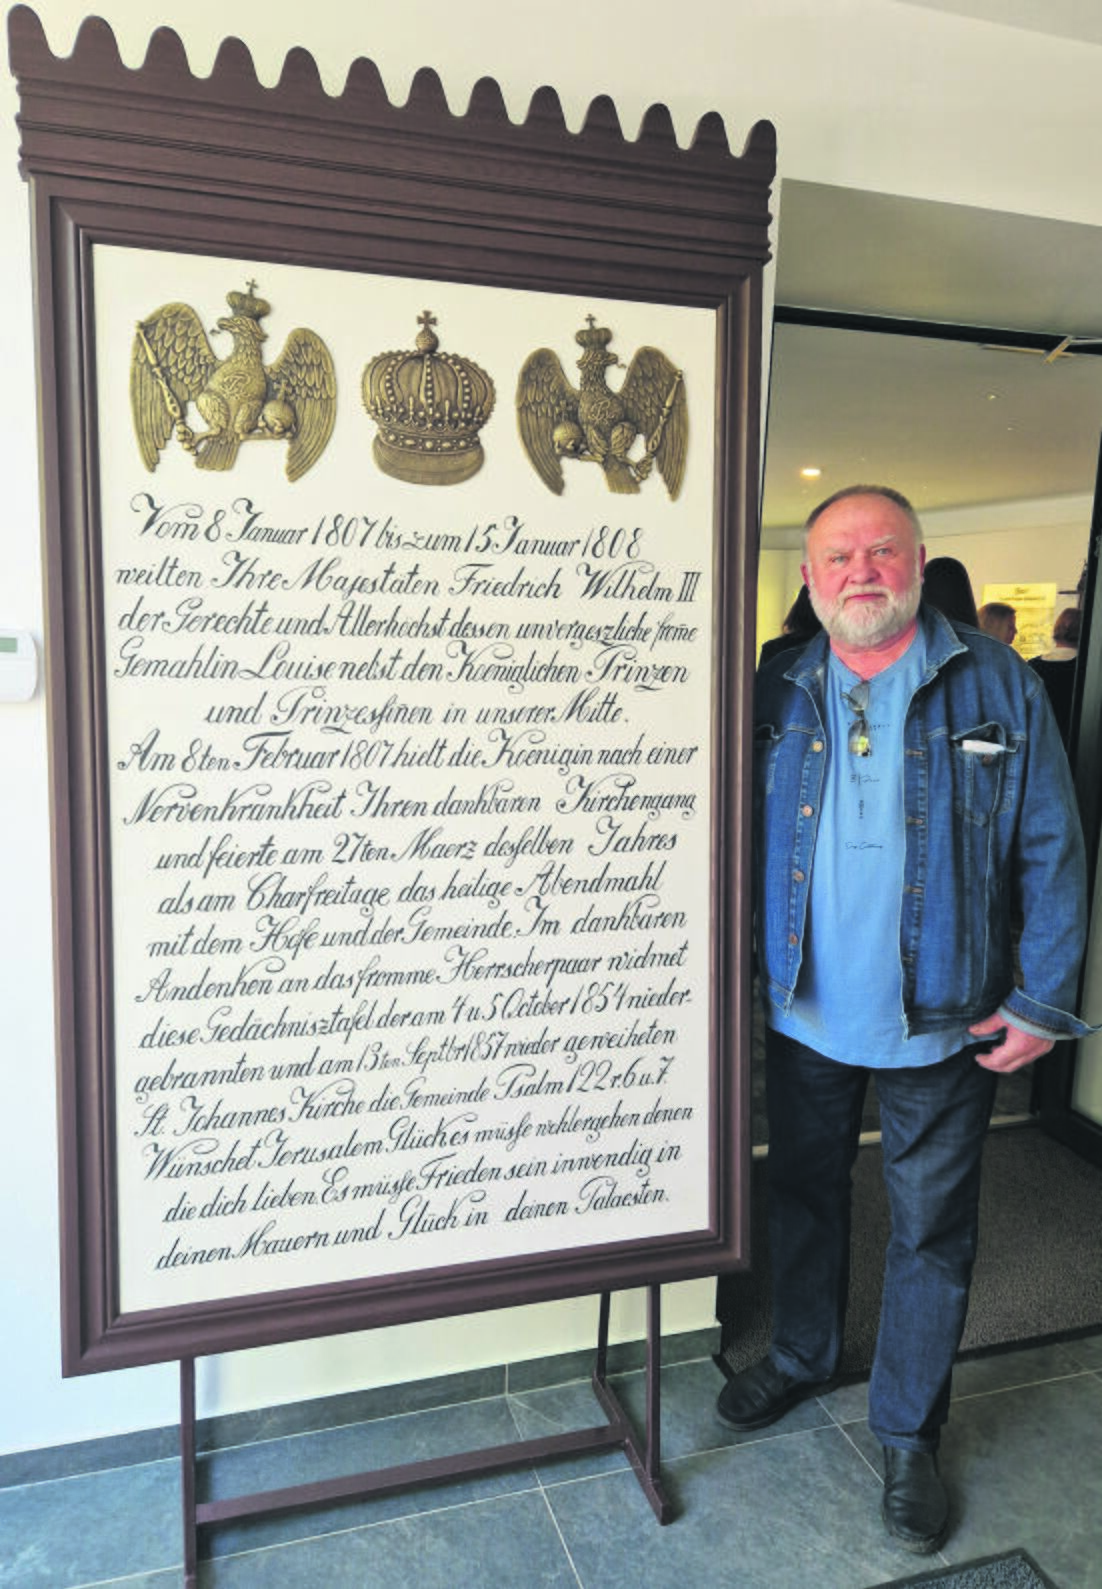 Vom 8 Januar 1807 bis zum 15 Januar 1808
weilten Ihre Majestaten Friedrich Wilhelm III
der Gerechte und Allerhöchst dessen unvergeszliche frome
Gemahlin Louise nebst den Koeniglichen Prinzen
und Prinzessinen in unserer Mitte.
Am 8ten Februar 1807 hielt die Koenigin nach einer
Nervenkrankheit Ihren dankbaren Kirchengang
und feierte am 27ten Maerz desselben Jahres
als am Charfreitage das heilige Abendmahl
mit dem Hofe und der Gemeinde. Im dankbaren
Andenken an das fromme Herrscherpaar widmet
diese Gedächnisztafel der am 4 u 5 October 1854 nieder-
gebrannten und am 13ten Septbr 1857 wieder geweiheten
St. Johannes Kirche die Gemeinde Psalm 122 v. 6 u. 7.
Wünschet Jerusalem Glück es müsse wohlergehen denen
die dich lieben. Es müsse Frieden sein inwendig in
deinen Mauern und Glück in deinen Palaesten.